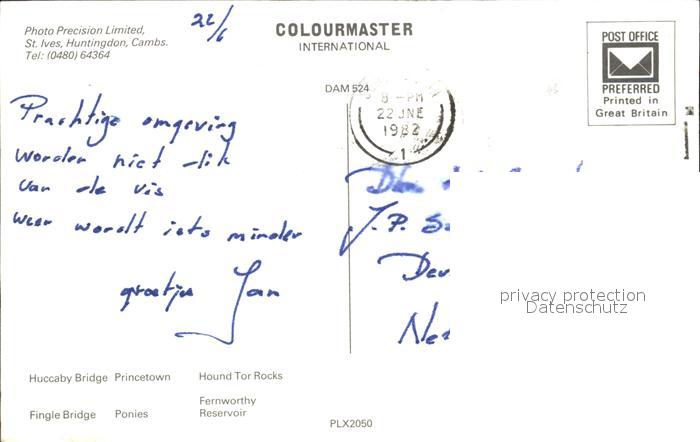 22/6
Photo Precision Limited,
St. Ives, Huntingdon, Cambs.
Tel: (0480) 64364
COLOURMASTER
INTERNATIONAL
POST OFFICE
PREFERRED
Printed in
Great Britain
DAM 524
8 - PM
22 JNE
1982
1
Prachtige omgeving
worden niet dik
van de vis
weer wordt iets minder
groetjes Jan
J. P. S
Den
Ne
privacy protection
Datenschutz
Huccaby Bridge Princetown Hound Tor Rocks
Fingle Bridge Ponies Fernworthy
Reservoir
PLX2050